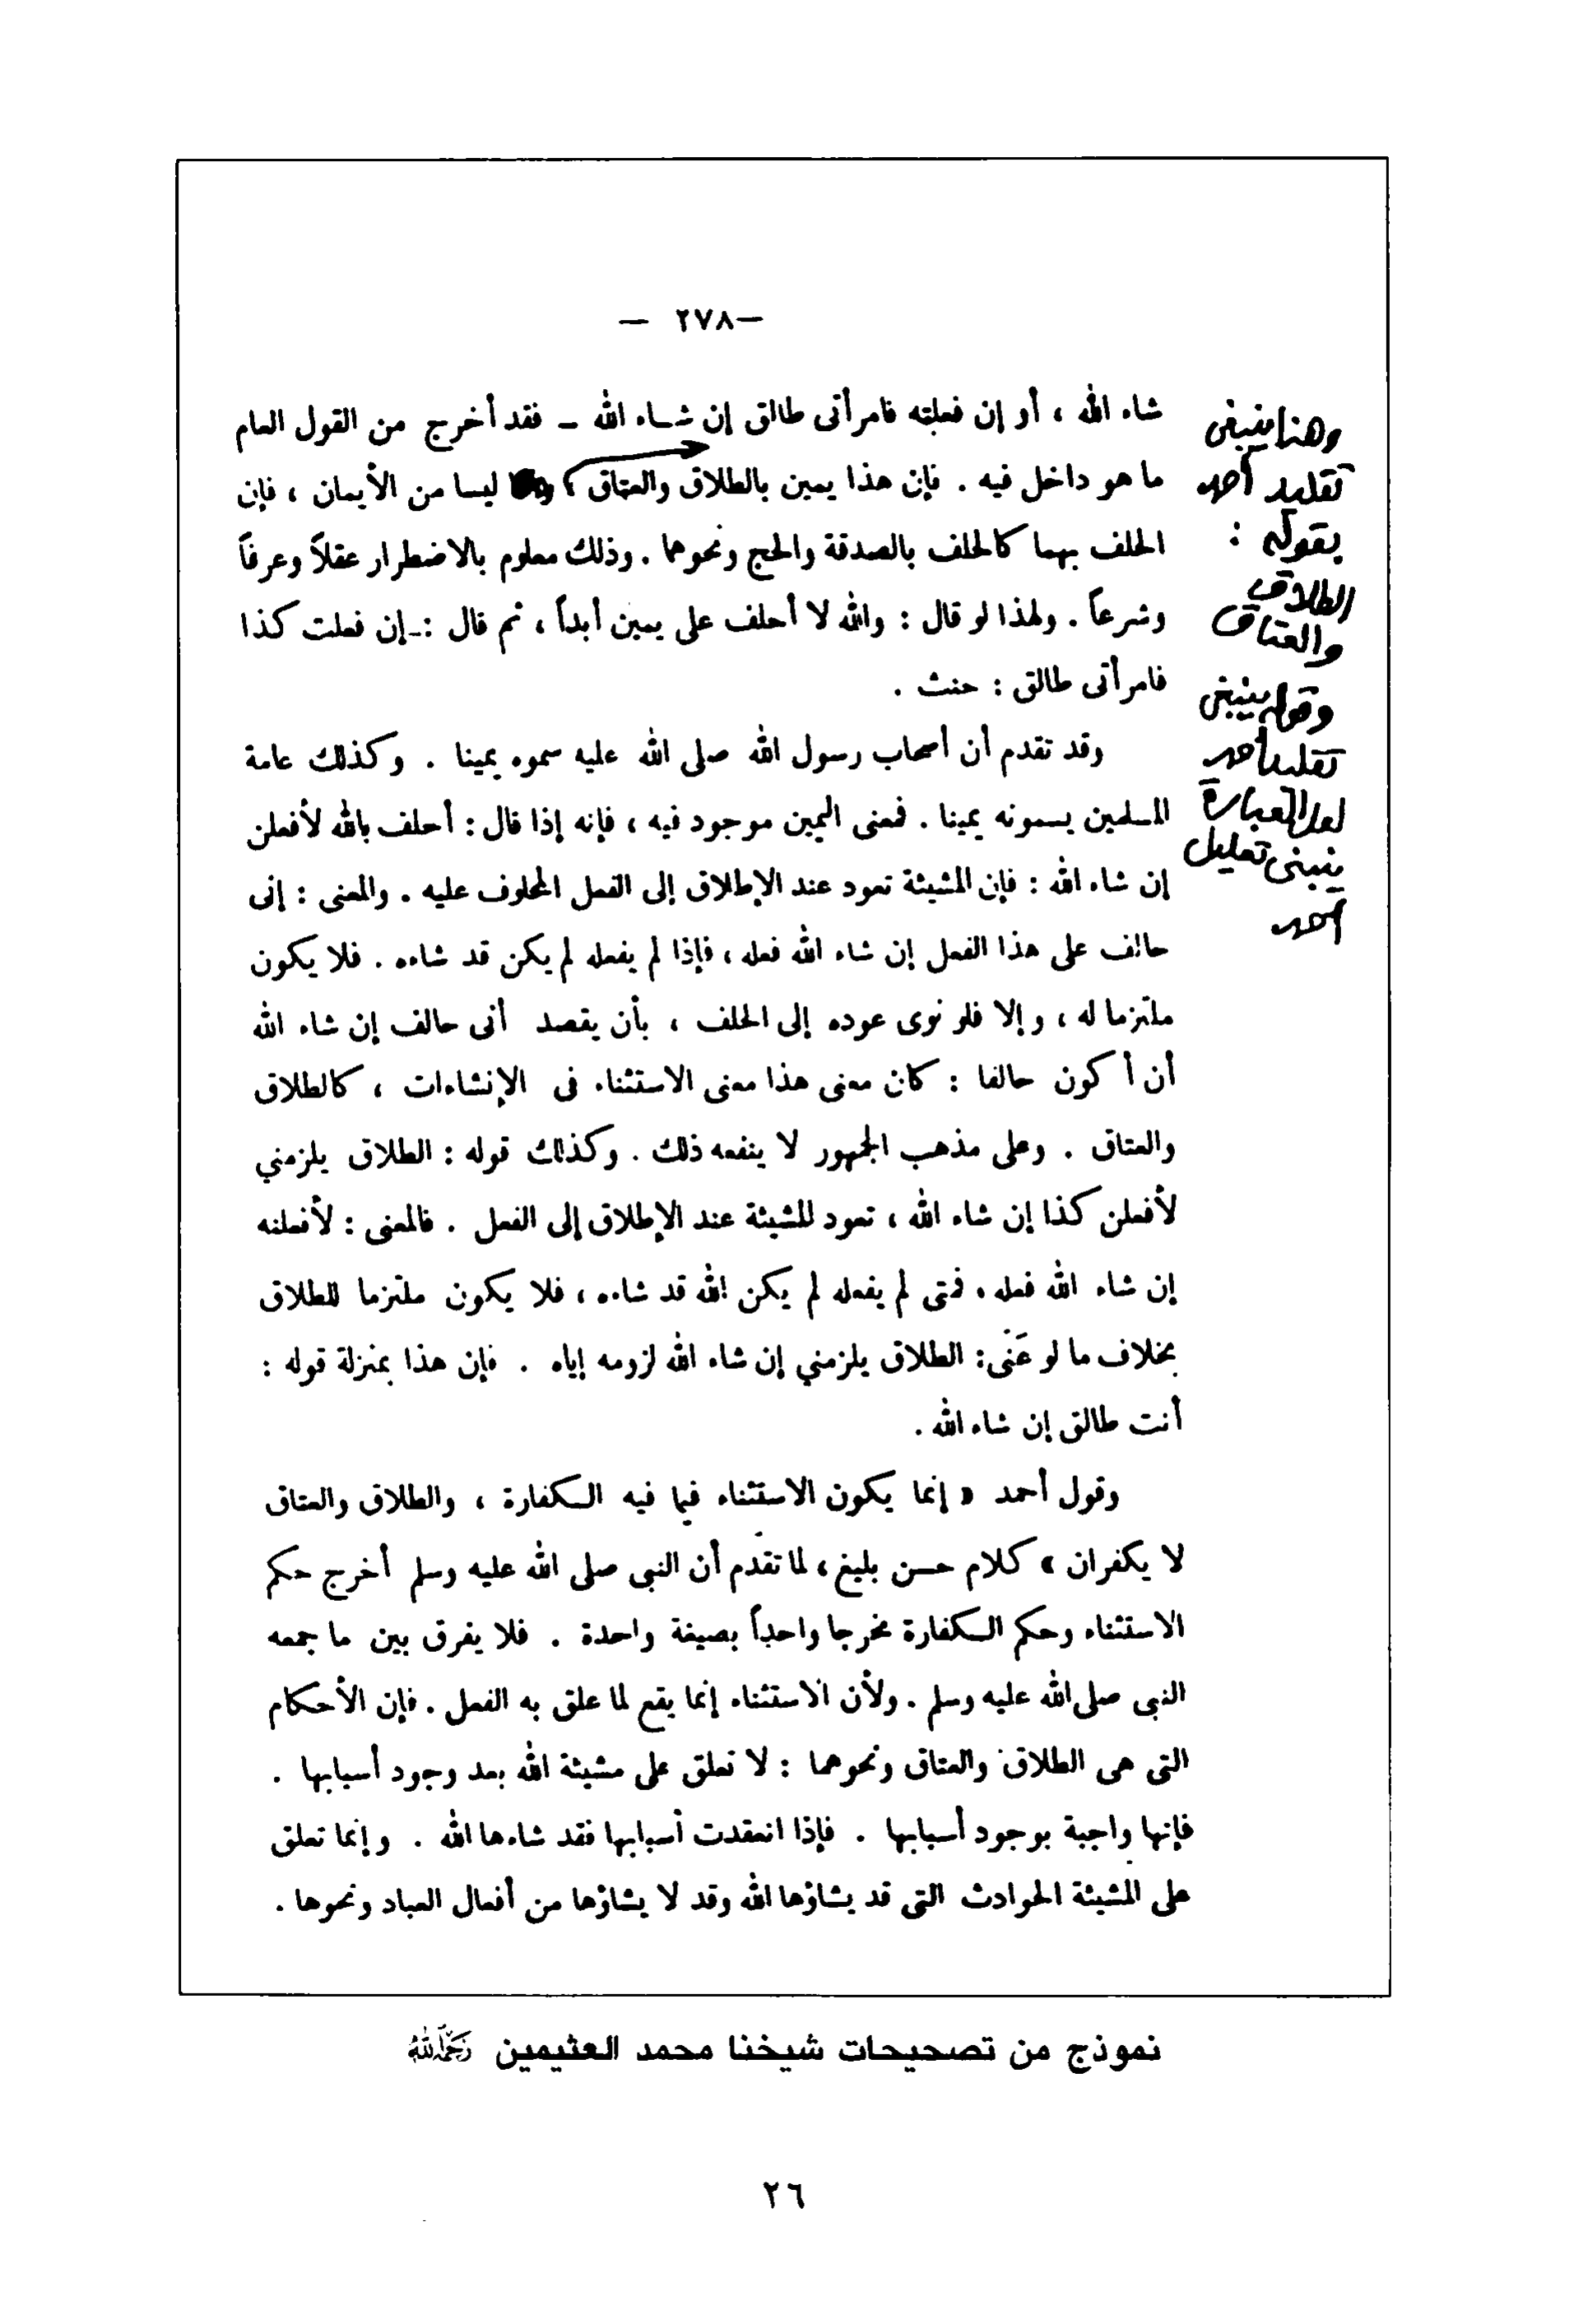 — ٢٧٨—
شاء الله ، أو إن فعلته فامرأتى طالق إن شاء الله – فقد أخرج من القول العام
ما هو داخل فيه . فإن هذا يمين بالطلاق والعتاق ، ليسا من الأيمان ، فإن
الحلف بهما كالحلف بالصدقة والحج ونحوهما . وذلك معلوم بالاضطرار عقلاً وعرفاً
وشرعاً . ولهذا لو قال : والله لا أحلف على يمين أبداً ، ثم قال : إن فعلت كذا
فامرأتى طالق : حنث .
وقد تقدم أن أصحاب رسول الله صلى الله عليه سموه يمينا . وكذلك عامة
المسلمين يسمونه يمينا . فمعنى اليمين موجود فيه ، فإنه إذا قال : أحلف بالله لأفعلن
إن شاء الله : فإن المشيئة تعود عند الإطلاق إلى الفعل المحلوف عليه . والمعنى : إنى
حالف على هذا الفعل إن شاء الله فعله ، فإذا لم يفعله لم يكن قد شاءه . فلا يكون
ملتزما له ، وإلا فلو نوى عوده إلى الحلف ، بأن يقصد أنى حالف إن شاء الله
أن أكون حالفا : كان معنى هذا معنى الاستثناء فى الإنشاءات ، كالطلاق
والعتاق . وعلى مذهب الجمهور لا ينفعه ذلك . وكذلك قوله : الطلاق يلزمني
لأفعلن كذا إن شاء الله ، تعود للمشيئة عند الإطلاق إلى الفعل . فالمعنى : لأفعلنه
إن شاء الله فعله ، فمتى لم يفعله لم يكن الله قد شاءه ، فلا يكون ملتزما للطلاق
بخلاف ما لو عَنَى: الطلاق يلزمني إن شاء الله لزومه إياه . فإن هذا بمنزلة قوله :
أنت طالق إن شاء الله .
وقول أحمد « إنما يكون الاستثناء فيما فيه الكفارة ، والطلاق والعتاق
لا يكفران » كلام حسن بليغ ، لما تقدم أن النبى صلى الله عليه وسلم أخرج حكم
الاستثناء وحكم الكفارة مخرجا واحداً بصيغة واحدة . فلا يفرق بين ما جمعه
النبى صلى الله عليه وسلم . ولأن الاستثناء إنما يقع لما علق به الفعل . فإن الأحكام
التى هى الطلاق والعتاق ونحوهما : لا تعلق على مشيئة الله بعد وجود أسبابها .
فإنها واجبة بوجود أسبابها . فإذا انعقدت أسبابها فقد شاءها الله . وإنما تعلق
على المشيئة الحوادث التى قد يشاؤها الله وقد لا يشاؤها من أفعال العباد ونحوها .
وهنا ينبغي
تقليد أحمد
بقوله :
الطلاق
والعتاق
وقوله ينبغي
تقليد أحمد
لعل العبارة
ينبني تعليل
أحمد
نموذج من تصحيحات شيخنا محمد العثيمين رحمه الله
٢٦